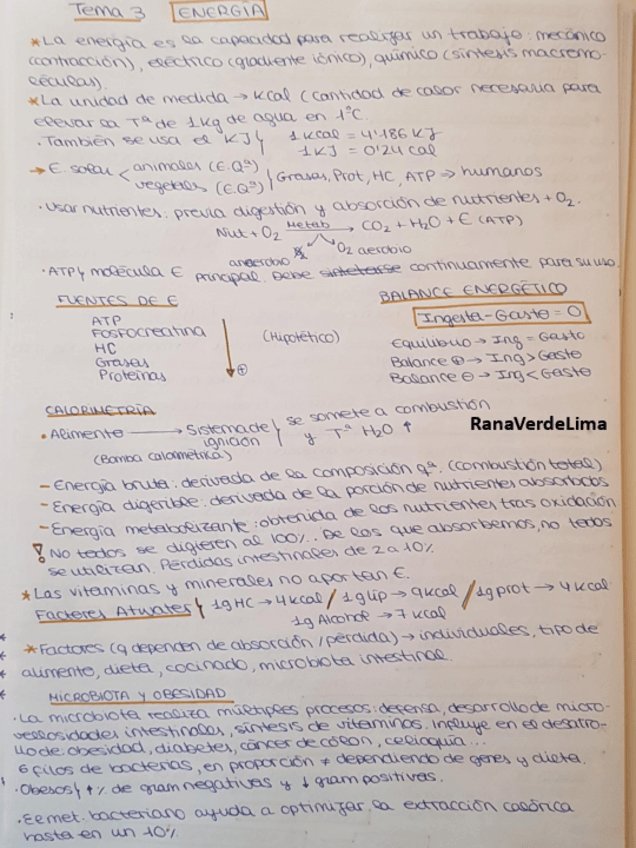 Tema 3 ENERGÍA
*La energía es la capacidad para realizar un trabajo: mecánico
(contracción), eléctrico (gradiente iónico), químico (síntesis macromo-
léculas).
*La unidad de medida → kcal (cantidad de calor necesaria para
elevar la Tª de 1kg de agua en 1°C.
· También se usa el KJ { 1 kcal = 4'186 KJ
1 KJ = 0'24 cal
→ E. solar < animales (E.Qª)
vegetales (E.Qª) { Grasas, Prot, HC, ATP → humanos
· Usar nutrientes: previa digestión y absorción de nutrientes + O₂.
Nut + O₂ Metab → CO₂ + H₂O + E (ATP)
anaerobio O₂ aerobio
· ATP { molécula E principal. Debe continuamente para su uso.
FUENTES DE E
ATP
Fosfocreatina
HC
Grasas
Proteínas
(Hipotético)
⊕
BALANCE ENERGÉTICO
Ingesta - Gasto = 0
Equilibrio → Ing = Gasto
Balance ⊕ → Ing > Gasto
Balance ⊖ → Ing < Gasto
CALORIMETRÍA
· Alimente → Sistema de ignición { se somete a combustión
y Tª H₂O ↑
(Bomba calorimétrica)
RanaVerdeLima
- Energía bruta: derivada de la composición qª. (combustión total)
- Energía digerible: derivada de la porción de nutrientes absorbidos
- Energía metabolizante: obtenida de los nutrientes tras oxidación
! No todos se digieren al 100%. De los que absorbemos, no todos
se utilizan. Pérdidas intestinales de 2 a 10%
*Las vitaminas y minerales no aportan E.
Factores Atwater { 1g HC → 4 kcal / 1g lip → 9 kcal / 1g prot → 4 kcal
1g Alcohol → 7 kcal
*Factores (q dependen de absorción / pérdida) → individuales, tipo de
alimento, dieta, cocinado, microbiota intestinal.
MICROBIOTA Y OBESIDAD
· La microbiota realiza múltiples procesos: defensa, desarrollo de micro-
vellosidades intestinales, síntesis de vitaminas. Influye en el desarro-
llo de: obesidad, diabetes, cáncer de cólon, celiaquía...
6 filos de bacterias, en proporción ≠ dependiendo de genes y dieta.
· Obesos { ↑% de gram negativas y ↓ gram positivas.
· El met. bacteriano ayuda a optimizar la extracción calórica
hasta en un 10%